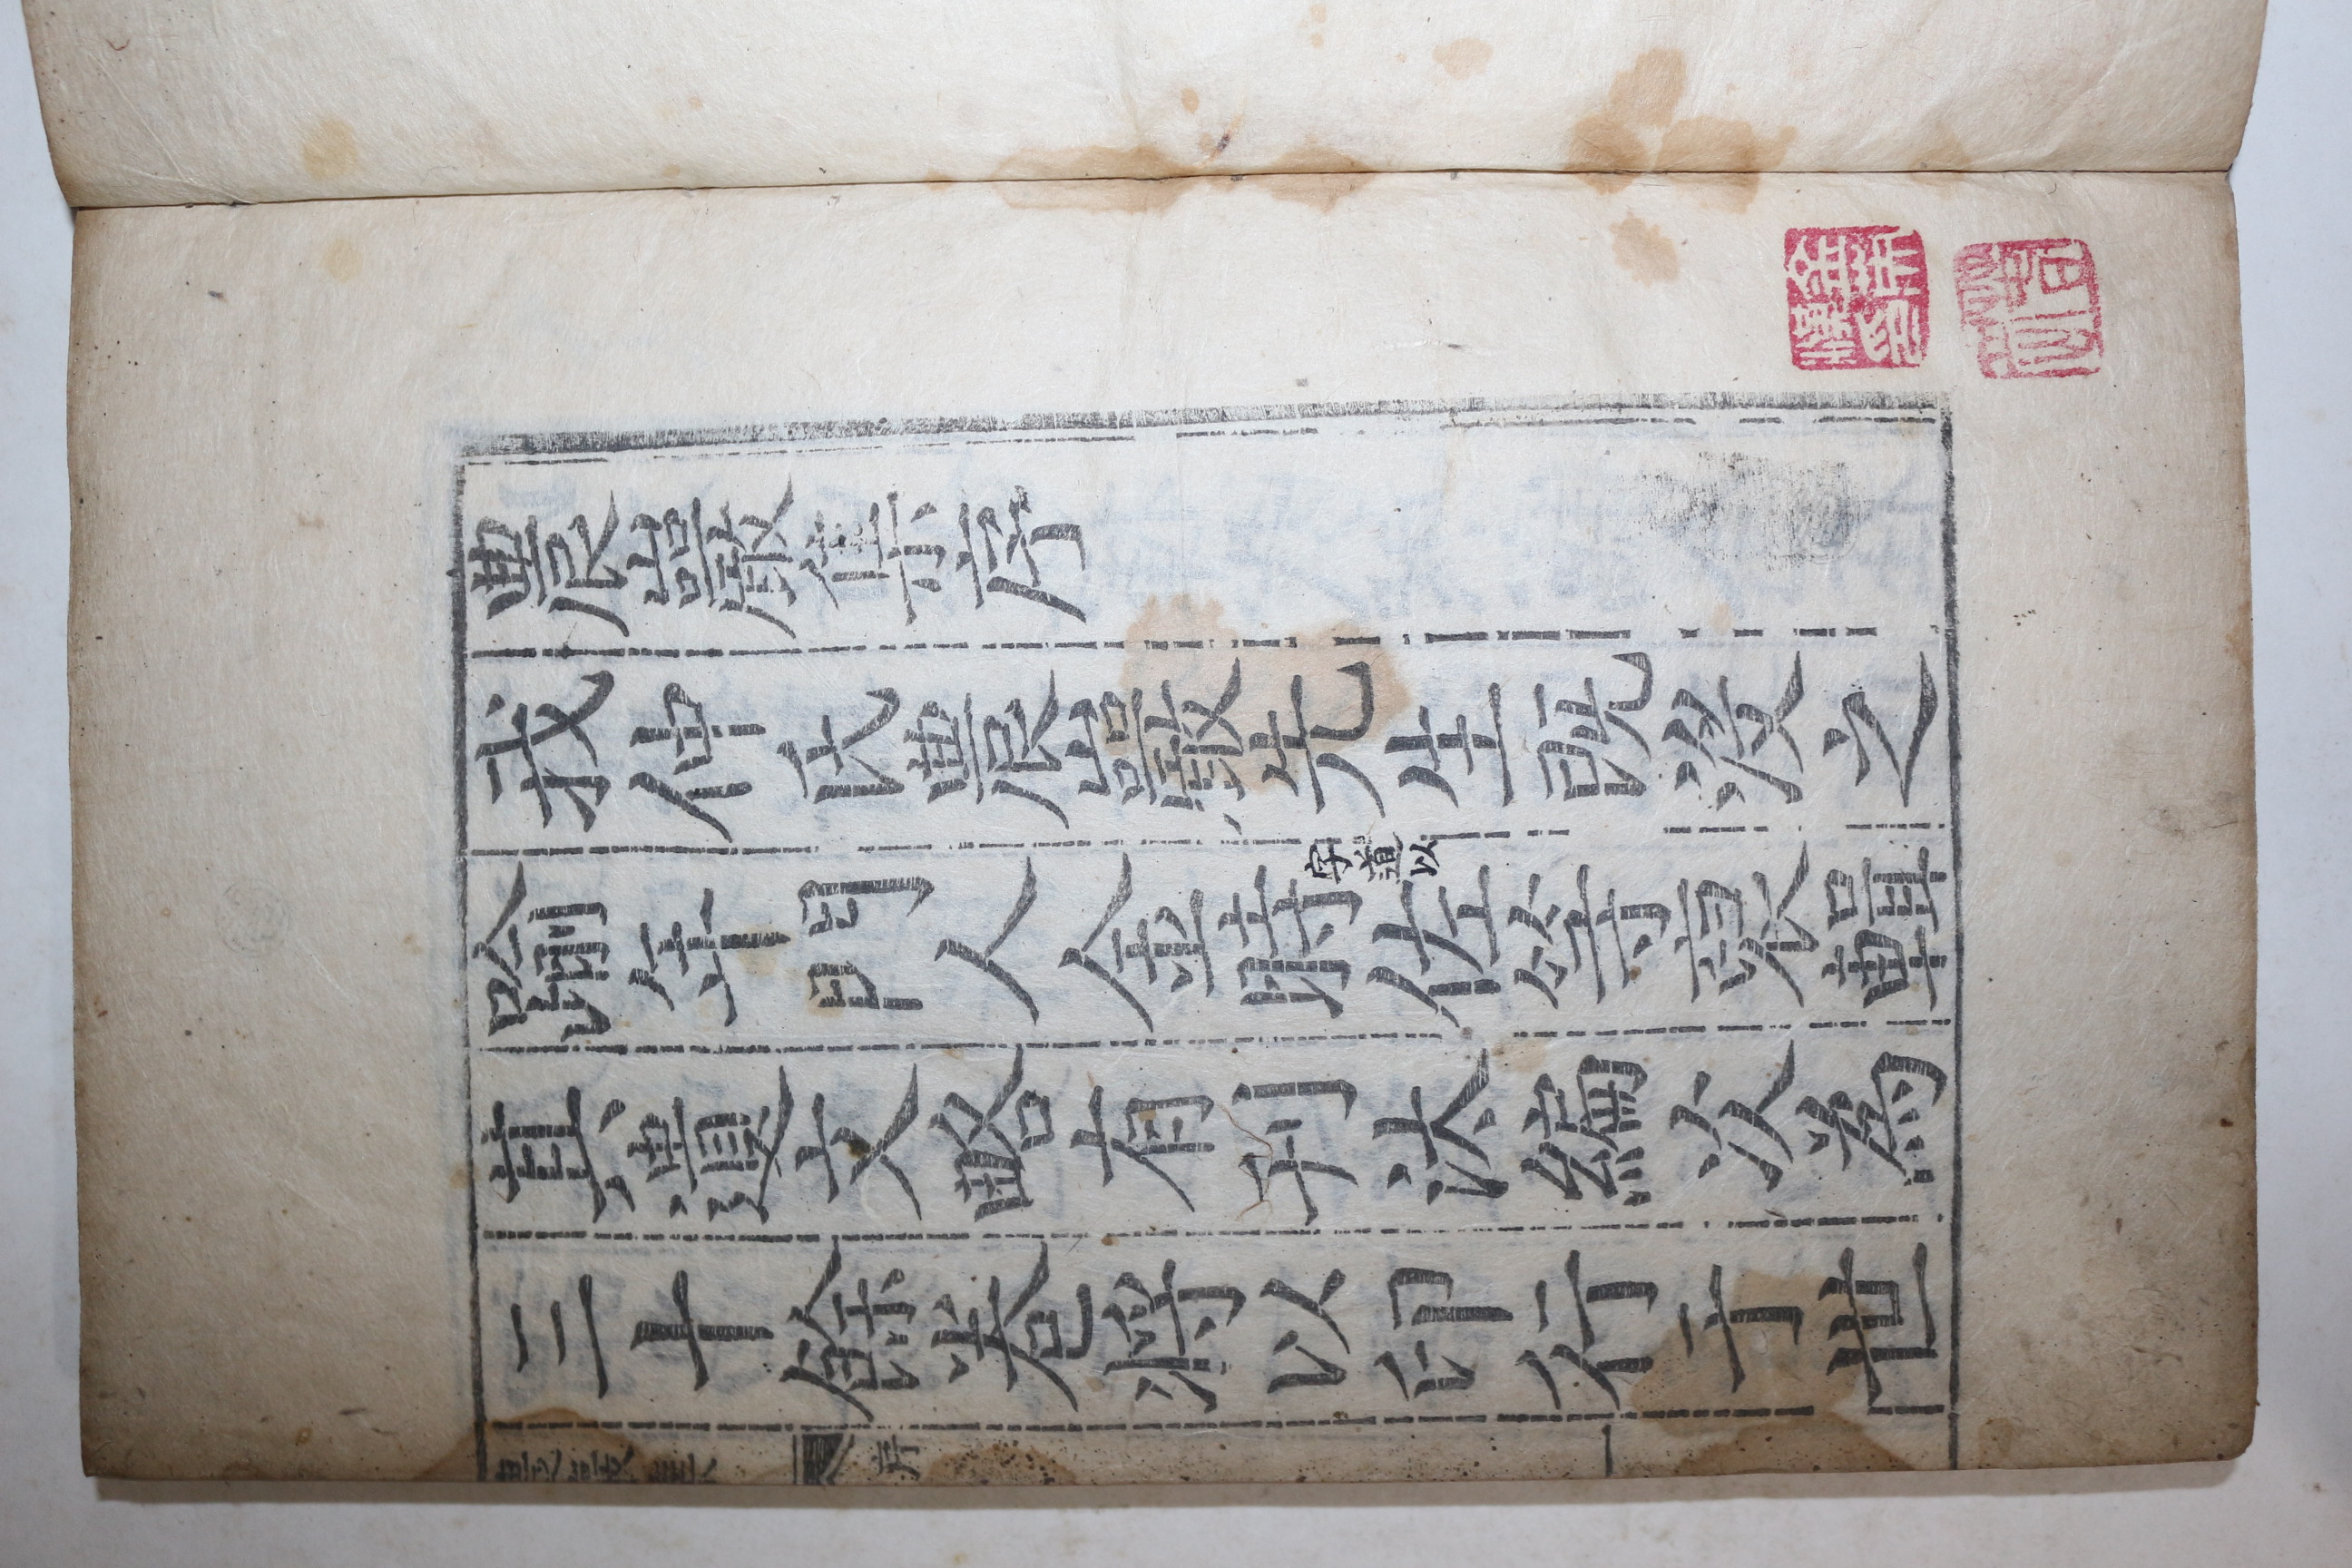 農巖集序
我仲氏農巖先生既没之
踰年門人金時佐等裒輯
字道以
其遺文略有刊汰編次為
三十餘卷將以印行于世
農巖集
序
一